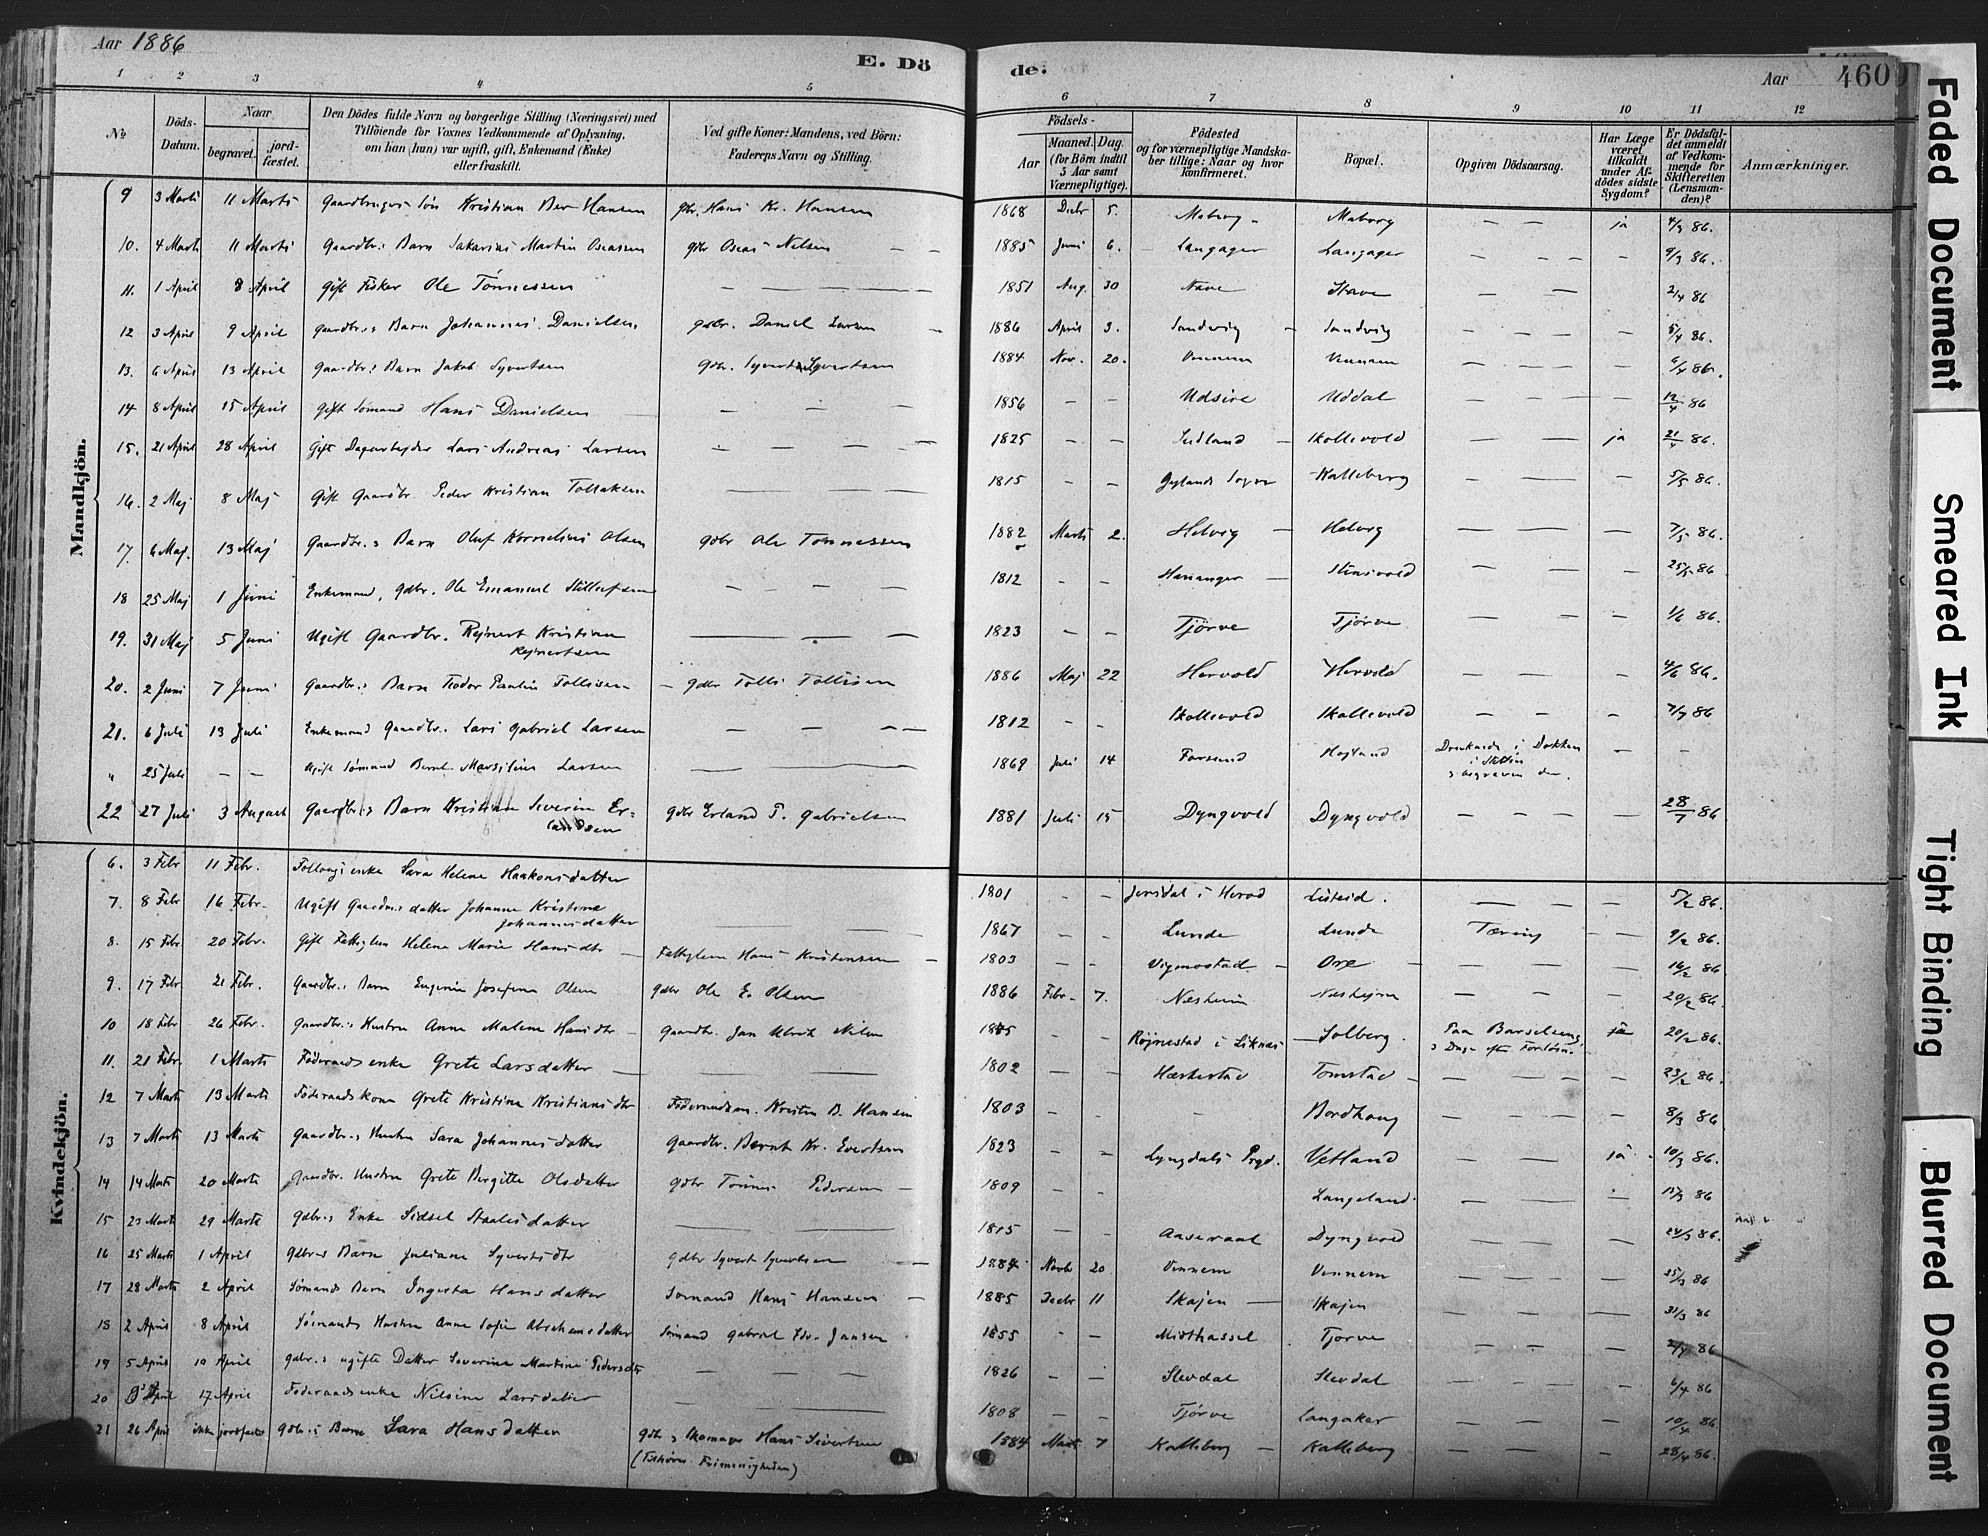 Aar 1886
E. Dö
de.
Aar
460
1 2 3 4 5 6 7 8 9 10 11 12
№
Döds-Datum.
Naar
begravet.
jord-fæstet.
Den Dödes fulde Navn og borgerlige Stilling (Næringsvei) med
Tilföiende for Voxnes Vedkommende af Oplysning,
om han (hun) var ugift, gift, Enkemand (Enke)
eller fraskilt.
Ved gifte Koner: Mandens, ved Börn:
Faderens Navn og Stilling.
Födsels-
Aar
Maaned. Dag.
(for Börn indtil
5 Aar samt
Værnepligtige).
Födested
og for værnepligtige Mandska-
ber tillige: Naar og hvor
konfirmeret.
Bopæl.
Opgiven Dödsaarsag.
Har Læge
været
tilkaldt
under Af-
dödes sidste
Sygdom?
Er Dödsfal-
det anmeldt
af Vedkom-
mende for
Skifteretten
(Lensman-
den)?
Anmærkninger.
Mandkjön.
9 3 Marts 11 Marts Gaardbrugers Søn Kristian Ber Hansen gbr. Hans Kr. Hansen 1868 Decbr 5. Maberg Maberg — — ja 4/3 86.
10. 4 Marts 11 Marts Gaardbr.s Barn Sakarias Martin Oseassen gdbr Oseas Nelsen — — 1885 Juni 6. Langager Langager — — — — 9/3 86.
11. 1 April 8 April Gift Fisker Ole Tønnessen — — — — 1851 Aug. 30 Stave — — — 2/4 86
12 3 April 9 April Gaardbr.s Barn Johannes Danielsen gdbr. Daniel Larsen — 1886 April 3. Sandvig — Sandvig — — — — 5/4 86.
13. 6 April 13 April Gaardbr.s Barn Jakob Syvertsen Gdbr. Syvert Syvertsen 1884 Nov. 20. Vennem Vennem — — — 6/4 86.
14 8 April 15 April Gift Sømand Hans Danielsen — — — 1856 — — Udsire Uddal — — — — 12/4 86
15. 21 April 28 April Gift Dagarbejder Lars Andreas Larsen — — — — 1825 — — Indland — Skollevold — — ja 21/4 86.
16. 2 Maj 8 Maj Gift Gaardbr. Peder Kristian Tollaksen — — — 1815 — — Gylands Sogn Kalleberg — — — 5/5 86.
17. 6 Maj. 13 Maj Gaardbr.s Barn Oluf Kornelius Olsen gdbr Ole Tønnessen 1882 Marts 2. Helvig — Helvig — — — 7/5 86.
18 25 Maj 1 Juni Enkemand, gdbr. Ole Emanuel — — — 1812 — — — — — — 25/5 86
19. 31 Maj 5 Juni Ugift Gaardbr. Rejnert Kristian
Rejnertsen — — — 1823 — — Tjørve Tjørve — — — 1/6 86.
20. 2 Juni 7 Juni Gaardbr.s Barn Teodor Paulin Tollisen — gdbr Tolli Tollisen 1886 Maj 22 Hervold Hervold — — — 4/6 86.
21. 6 Juli 13 Juli Enkemand Gaardbr. Lars Gabriel Larsen — — — — 1812 — — Skollevold Skollevold — — — 7/7 86
„ 25 Juli — — Ugift Sømand Bernt Marsilius Larsen — — — 1869 Juli 14 Farsund Højland Druknede i Dokken
i Stettin
& begraven der. — —
22 27 Juli 3 August Gaardbr.s Barn Kristian Severin Er-
landsen gdbr Erland T. Gabrielsen 1881 Juli 15 Dyngvold Dyngvold — — — — 28/7 86
Kvindekjön.
6. 3 Febr 11 Febr. enke Sara Helene Haakonsdatter 1801 — — Jersdal i Herad Listeid. — — — 5/2 86.
7. 8 Febr 16 Febr. Ugift Gaardm.s datter Johanne Kristine
Johannesdatter — — 1867 Lunde Lunde Tæring — — 9/2 86.
8. 15 Febr 20 Febr. Gift Fattiglem Helene Marie Hansdtr — Fattiglem Hans Kristensen — 1803 — — Vigmostad — Ore — — — — 16/2 86
9. 17 Febr 21 Febr. Gaardbr.s Barn Eugenie Josefine Olsen gdbr Ole E. Olsen 1886 Febr. 7. Næsheim Næsheim — — — 20/2 86.
10 18 Febr 26 Febr. Gaardbr.s Hustru Anne Malene Hansdtr — Gaardbr. Jan Ulrik Nilsen — — Røjnestad i Liknes — Solberg. Paa Barselseng,
3 Dage efter Forløsn. ja 20/2 86.
11. 21 Febr. 1 Marts Føderaadsenke Grete Larsdatter — — — — 1802 — — Hærkestad Tomstad — — — — — 23/2 86
12 7 Marts 13 Marts Føderaadskone Grete Kristine Kristiansdtr Føderaadsm. Kristen B. Hansen 1803 — — — Bordhaug — — — 8/3 86
13 7 Marts 13 Marts Gaardbr.s Hustru Sara Johannesdatter Gaardbr. Bernt Kr. Evertsen 1823 — — Lyngdals Prgd. Vetland — — ja 10/3 86.
14 14 Marts 20 Marts Gaardbr. Hustru Grete Bergitte Olsdatter gdbr Tønnes Pedersen — 1809 — — Langeland. — — — 15/3 86
15 23 Marts 29 Marts Gdbr.s Enke Sidsel Staalesdatter — — 1815 — — Aaseraal Dyngvold — — — 24/3 86.
16 25 Marts 1 April Gdbr.s Barn Juliane Syvertsdtr gdbr Syvert Syvertsen — 1884 Novbr 20 Vennem Vennem — — — — 25/3 86
17 28 Marts 2 April Sømands Barn Ingesta Hansdatter Sømand Hans Hansen — 1885 Decbr 11 Skajen — Skajen — — — 31/3 86
18 2 April 8 April Sømands Hustru Anne Sofie Abrahamsdatter Sømand Gabriel Edv. Jansen 1855 — — Midthassel Tjørve — — — 86
19 5 April 10 April Gdbr.s ugifte Datter Severine Martine Pedersdtr — — 1826 — — Slevdal Slevdal — — — 6/4 86
20 April 17 April Føderaadsenke Nilsine Larsdatter — — 1808 — — Tjørve Langaker — — — 10/4 86
21 26 April ikke jordfæstet Gdbr.s Barn Sara Hansdatter gdbr & Hans Sivertsen
1884 Marts 7 Kalleberg — Kalleberg — — — 28/4 86.
Faded Document
Smeared Ink
Tight Binding
Blurred Document